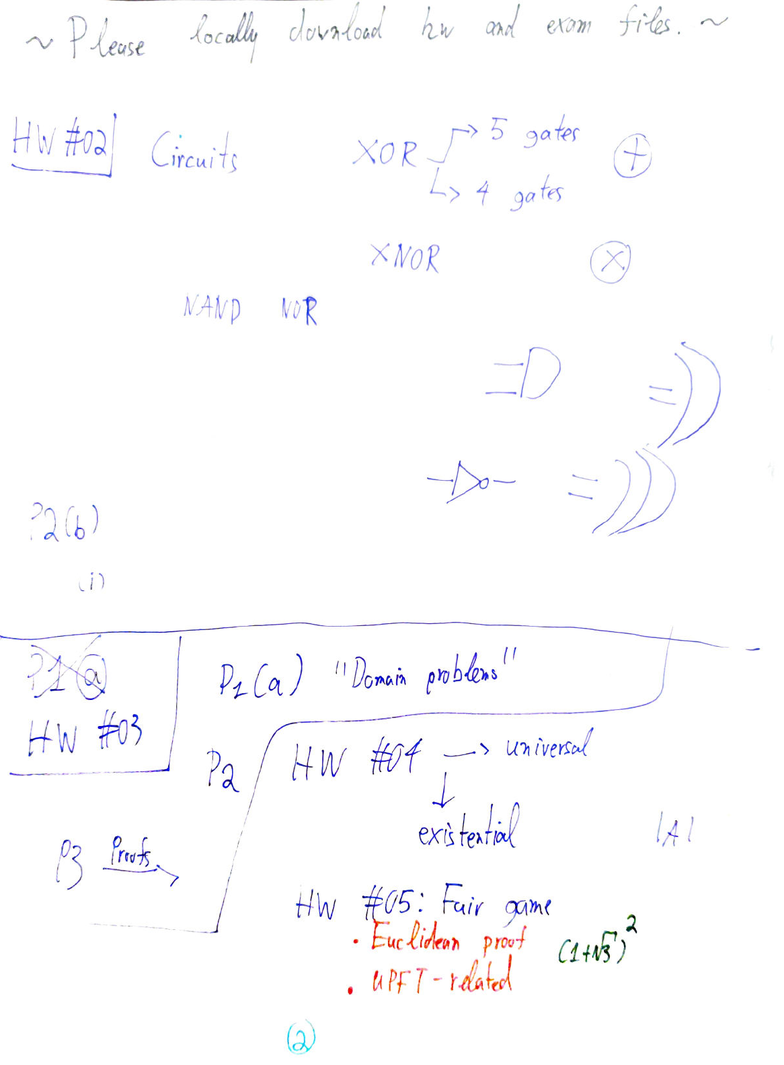 ~ Please locally download hw and exam files. ~
HW #02 Circuits XOR → 5 gates ⊕
→ 4 gates
XNOR ⊗
NAND NOR
P2(b)
(i)
P1 ⓐ P1(a) "Domain problems"
HW #03
P2 HW #04 → universal
↓
existential |A|
P3 Proofs →
HW #05: Fair game
• Euclidean proof (1+√3)²
• UPFT-related
(2)